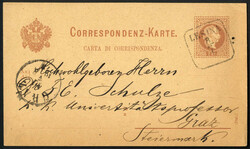 CORRESPONDENZ-KARTE.
CARTA DI CORRISPONDENZA.
Hochwohlgeboren Herrn
Schulze
k. k. Universitätsprofessor
Graz
Steiermark